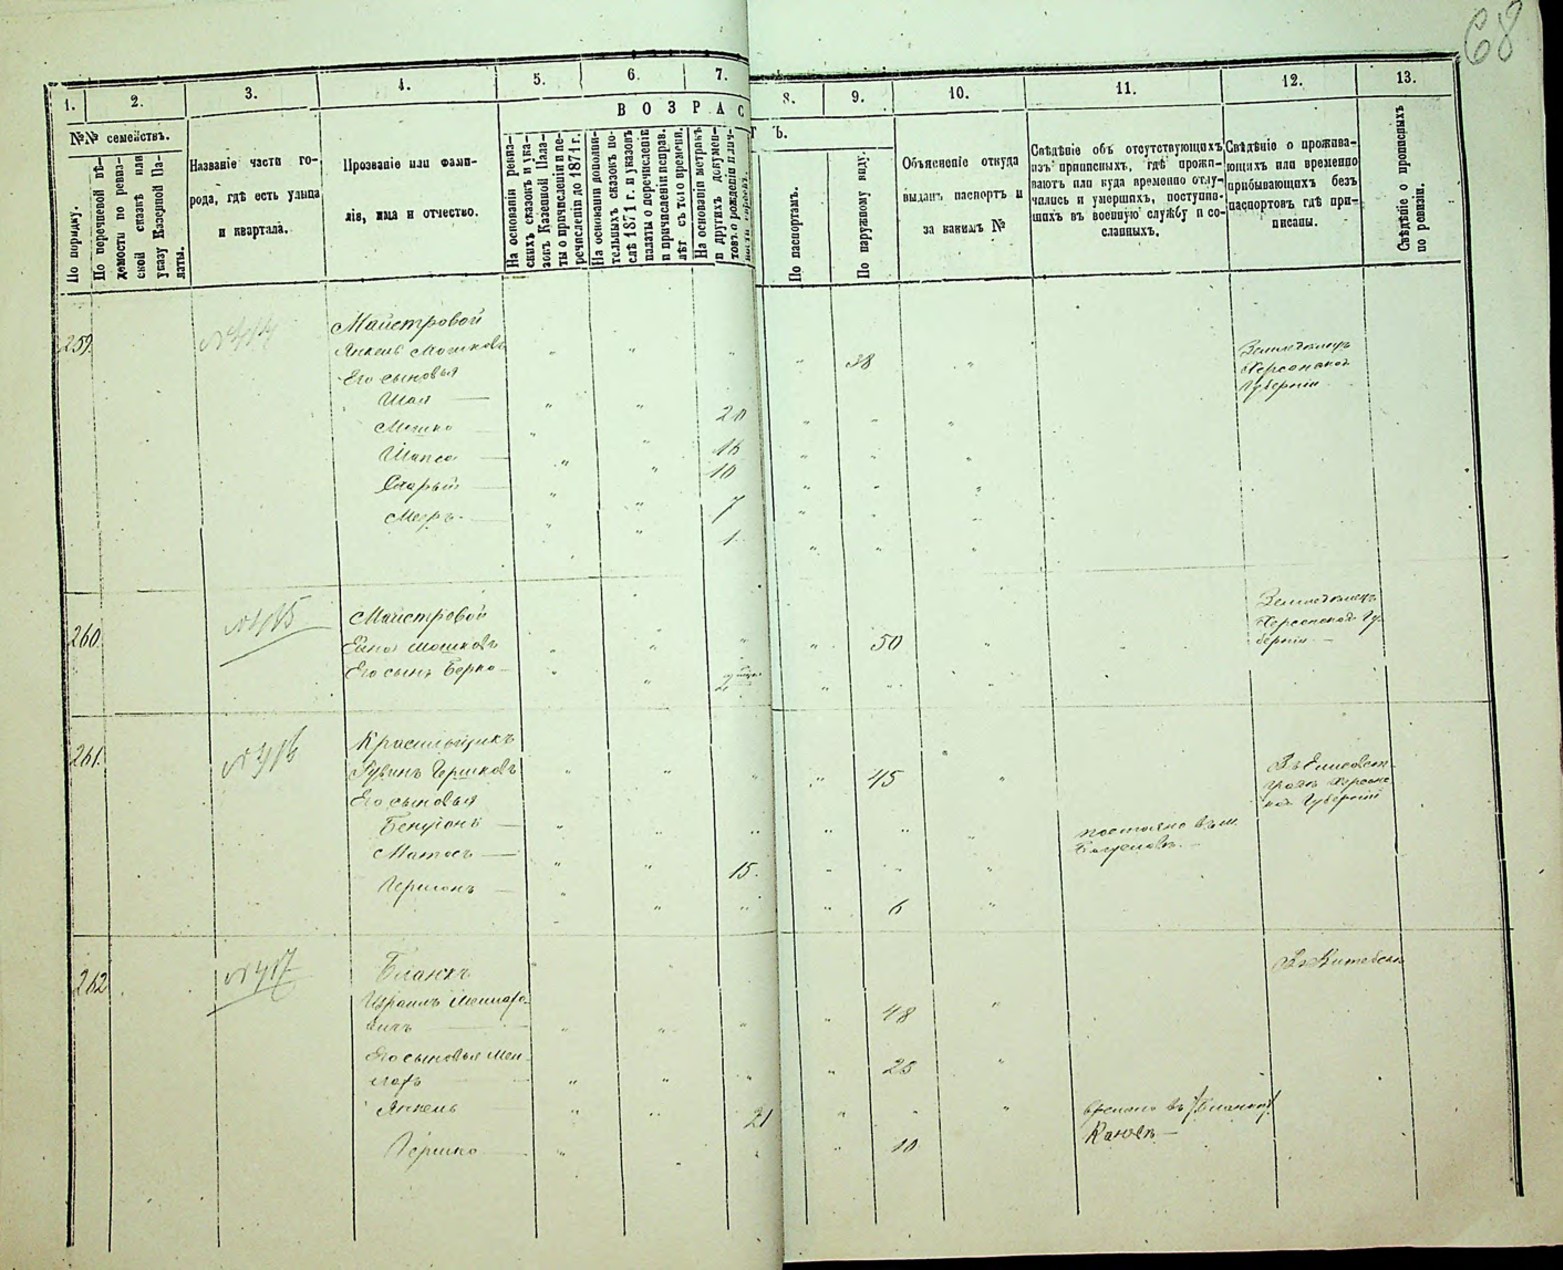 68
1.
2.
3.
4.
5.
6.
7.
8.
9.
10.
11.
12.
13.
ВОЗРАС
Т Ъ.
№№ семействъ.
По порядку.
По перечневой вѣ-
домости по ревиз-
ской сказкѣ или
указу Казенной Па-
латы.
Названіе части го-
рода, гдѣ есть улица
и квартала.
Прозваніе или фами-
лія, имя и отчество.
На основаніи ревиз-
скихъ сказокъ и ука-
зокъ Казенной Пала-
ты о причисленіи и пе-
речисленіи до 1871 г.
На основаніи дополни-
тельныхъ сказокъ по-
слѣ 1871 г. и указовъ
палаты о перечисленіи
и причисленіи исправ.
лѣт съ того времени.
На основаніи метрикъ
и другихъ докумен-
товъ о рожденіи и лич-
ности евреевъ.
По паспортамъ.
По наружному виду.
Объясненіе откуда
выданъ паспортъ и
за какимъ №
Свѣдѣніе объ отсутствующихъ
изъ приписныхъ, гдѣ прожи-
ваютъ или куда временно отлу-
чились и умершихъ, поступив-
шихъ въ военную службу и со-
сланныхъ.
Свѣдѣніе о прожива-
ющихъ или временно
прибывающихъ безъ
паспортовъ гдѣ при-
писаны.
Свѣдѣніе о прописныхъ
по ревизіи.
259.
Майстровой
Янкель Мошковъ
38
Херсонской
Губерніи
Его сыновья
Шая
20
Мошко
16
Шапса
10
Старый
7
Мееръ
1
260
№ 415
Майстровой
Мошковъ
50
Херсонской Гу-
берніи
Его сынъ Берко
261.
№ 416
Красильщикъ
Рувинъ Гершковъ
45
Въ Елисавет-
градѣ Херсонс
кой Губерніи
Его сыновья
Бенціонъ
постоянно въ м.
Матосъ
15.
Гершонъ
6
262
№ 417
Бланкъ
Въ Витебскѣ
Израиль
вичъ
48
Его сыновья Мен
25
Янкель
21
Каневъ
Гершко
10